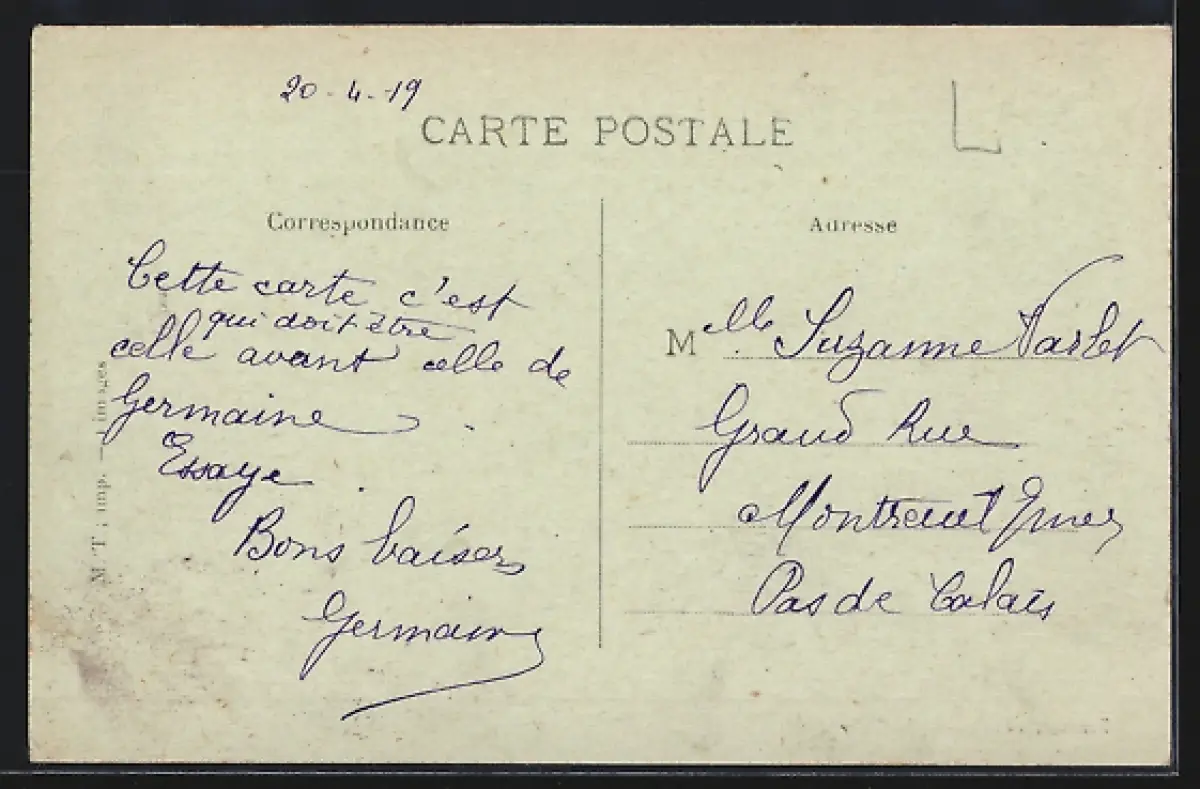 20-4-19
CARTE POSTALE
Correspondance
Cette carte c'est
qui doit être
celle avant celle de
Germaine.
Essaye.
Bons baisers
Germaine
Adresse
Mlle Suzanne Varlet
Grand Rue
Montreuil s/mer
Pas de Calais
M. T.; imp. — Limoges